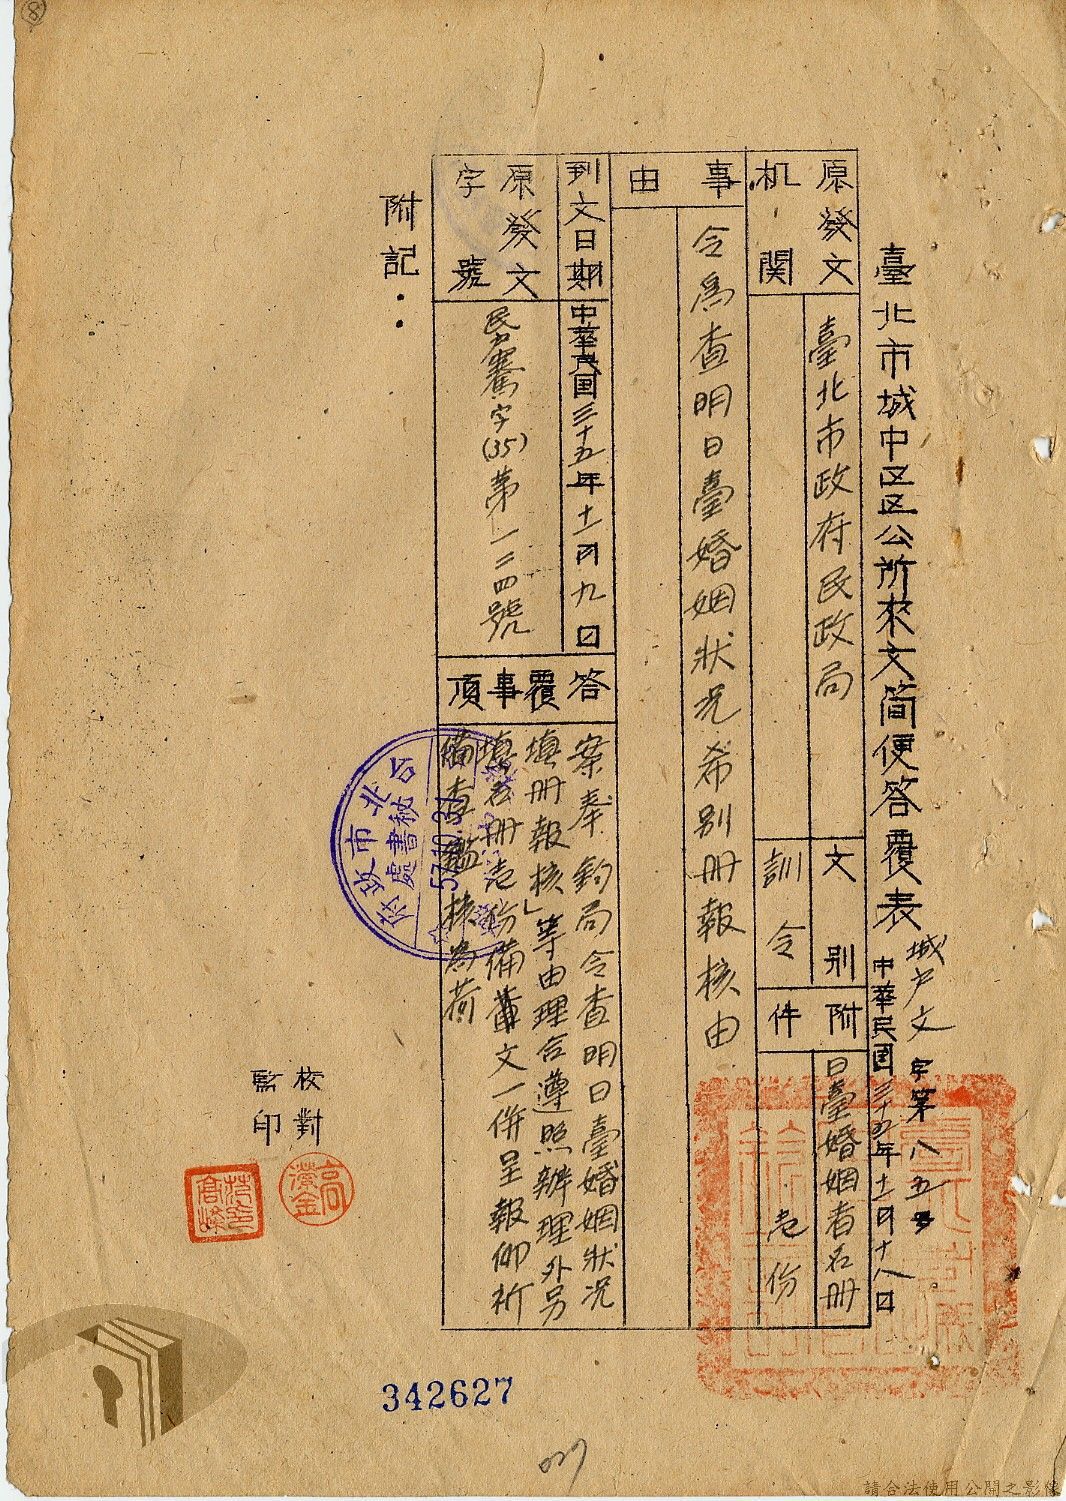 臺北市城中区区公所來文简便答覆表
城戶文字第八五号
中華民国三十五年十一月十八日
原發文机関
臺北市政府民政局
文别
訓令
附件
日臺婚姻者名册壱份
事由
令為查明日臺婚姻狀况希别册報核由
到文日期
中華民国三十五年十一月九日
原發文字號
字(35)第一二四號
答覆事項
案奉鈞局令查明日臺婚姻狀况
填册報核」等由理合遵照辦理外另
填名册壱份備文一併呈報仰祈
備查鑑核為荷
附記：
校對
監印
臺北市政府秘書處
57.10.31
342627
027
8
請合法使用公開之影像